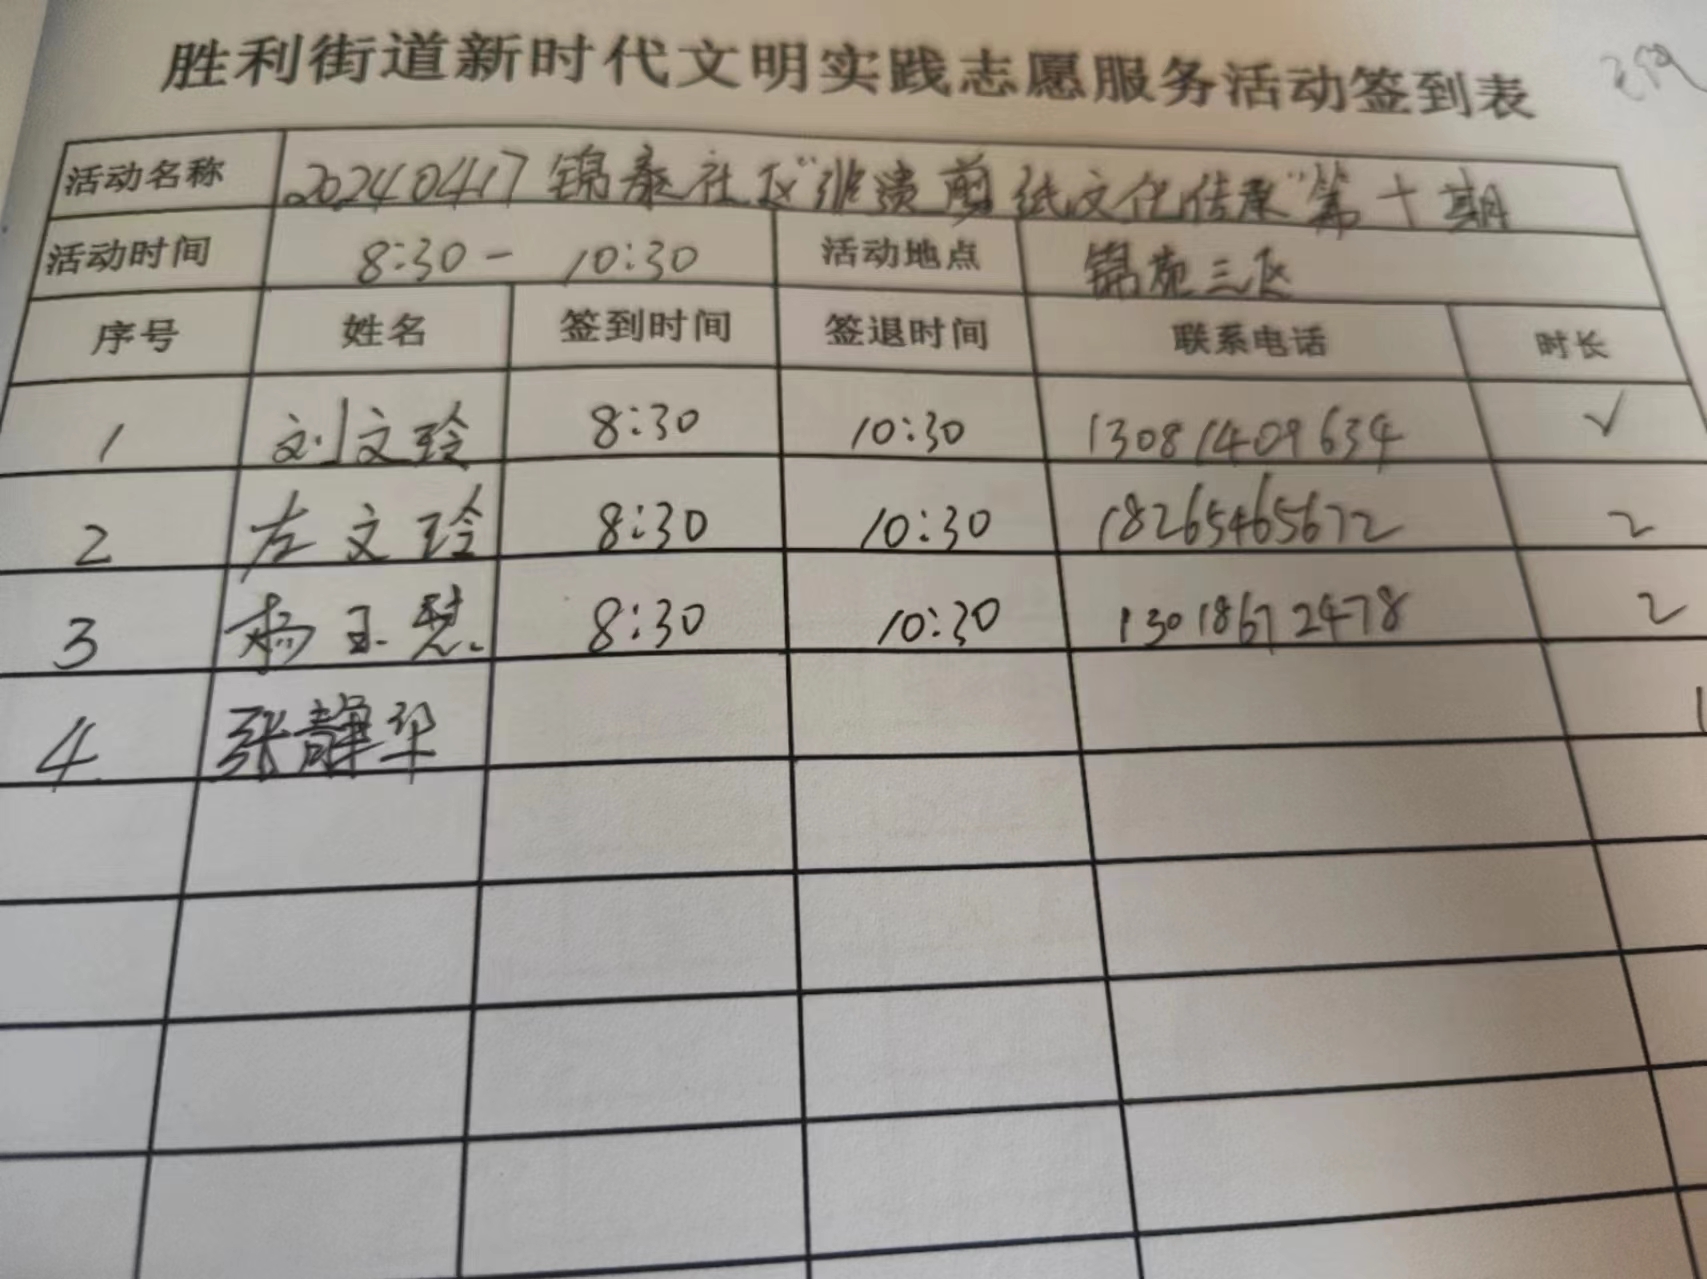 胜利街道新时代文明实践志愿服务活动签到表
活动名称 20240417锦泰社区"非遗剪纸文化传承"第十期
活动时间 8:30 - 10:30 活动地点 锦苑三区
序号 姓名 签到时间 签退时间 联系电话 时长
1 刘文玲 8:30 10:30 13081409634 ✓
2 左文玲 8:30 10:30 18265465672 2
3 杨玉慧 8:30 10:30 13018672478 2
4 张静华